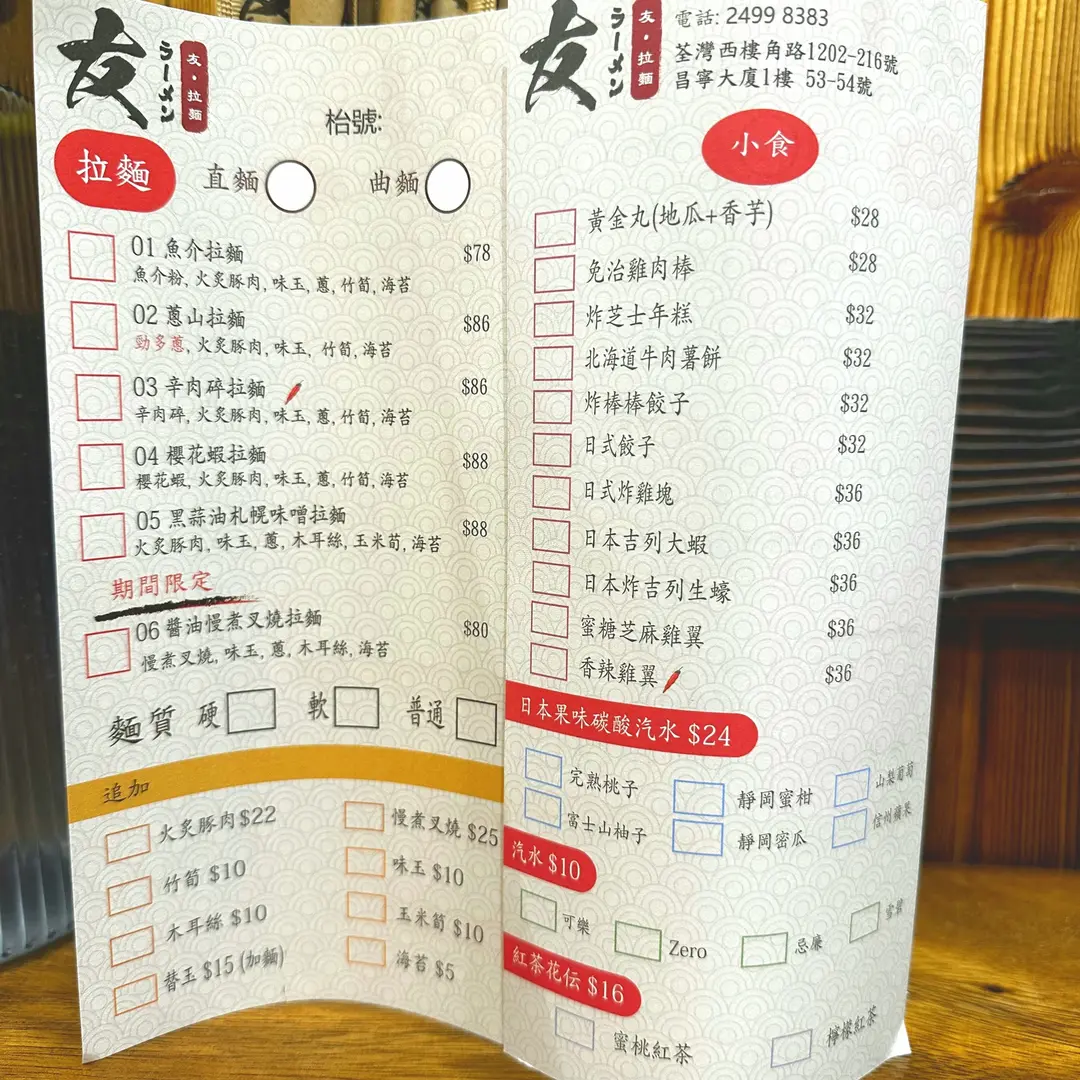 友
ラーメン
友・拉麵
枱號:
拉麵
直麵
曲麵
01 魚介拉麵 $78
魚介粉, 火炙豚肉, 味玉, 蔥, 竹筍, 海苔
02 蔥山拉麵 $86
勁多蔥, 火炙豚肉, 味玉, 竹筍, 海苔
03 辛肉碎拉麵 $86
辛肉碎, 火炙豚肉, 味玉, 蔥, 竹筍, 海苔
04 櫻花蝦拉麵 $88
櫻花蝦, 火炙豚肉, 味玉, 蔥, 竹筍, 海苔
05 黑蒜油札幌味噌拉麵 $88
火炙豚肉, 味玉, 蔥, 木耳絲, 玉米筍, 海苔
期間限定
06 醬油慢煮叉燒拉麵 $80
慢煮叉燒, 味玉, 蔥, 木耳絲, 海苔
麵質 硬 軟 普通
追加
火炙豚肉 $22 慢煮叉燒 $25
竹筍 $10 味玉 $10
木耳絲 $10 玉米筍 $10
替玉 $15 (加麵) 海苔 $5
友
ラーメン
友・拉麵
電話: 2499 8383
荃灣西樓角路1202-216號
昌寧大廈1樓 53-54號
小食
黃金丸(地瓜+香芋) $28
免治雞肉棒 $28
炸芝士年糕 $32
北海道牛肉薯餅 $32
炸棒棒餃子 $32
日式餃子 $32
日式炸雞塊 $36
日本吉列大蝦 $36
日本炸吉列生蠔 $36
蜜糖芝麻雞翼 $36
香辣雞翼 $36
日本果味碳酸汽水 $24
完熟桃子 靜岡蜜柑 山梨葡萄
富士山柚子 靜岡密瓜 信州蘋果
汽水 $10
可樂 Zero 忌廉 雪碧
紅茶花伝 $16
蜜桃紅茶 檸檬紅茶